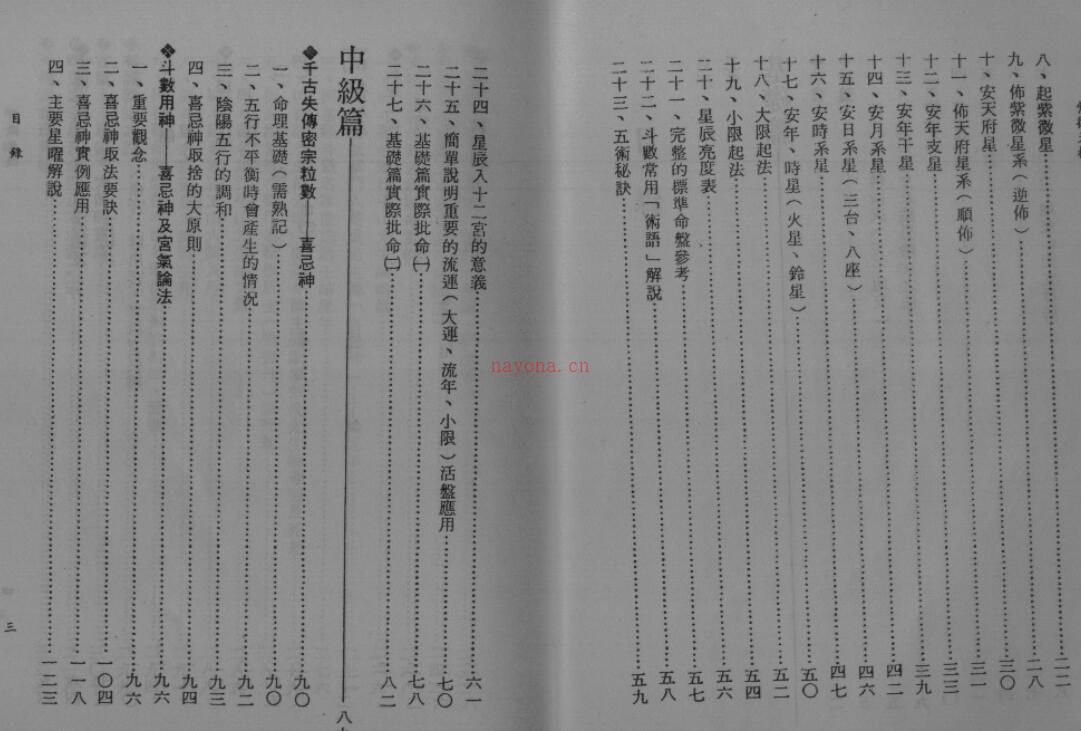 八、起紫微星……二二
九、佈紫微星系（逆佈）……二八
十、安天府星……三〇
十一、佈天府星系（順佈）……三一
十二、安年支星……三三
十三、安年干星……三九
十四、安月系星……四二
十五、安日系星（三台、八座）……四六
十六、安時系星……四七
十七、安年、時星（火星、鈴星）……五〇
十八、大限起法……五二
十九、小限起法……五四
二十、星辰亮度表……五六
二十一、完整的標準命盤參考……五七
二十二、斗數常用「術語」解說……五八
二十三、五術秘訣……五九
二十四、星辰入十二宮的意義……六一
二十五、簡單說明重要的流運（大運、流年、小限）活盤應用……七〇
二十六、基礎篇實際批命㈠……七八
二十七、基礎篇實際批命㈡……八二
中級篇——八
◆千古失傳密宗粒數——喜忌神……九〇
一、命理基礎（需熟記）……九〇
二、五行不平衡時會產生的情況……九二
三、陰陽五行的調和……九三
四、喜忌神取捨的大原則……九四
◆斗數用神——喜忌神及宮氣論法……九六
一、重要觀念……九六
二、喜忌神取法要訣……一〇四
三、喜忌神實例應用……一一八
四、主要星曜解說……一二三
目錄
三
nayona.cn